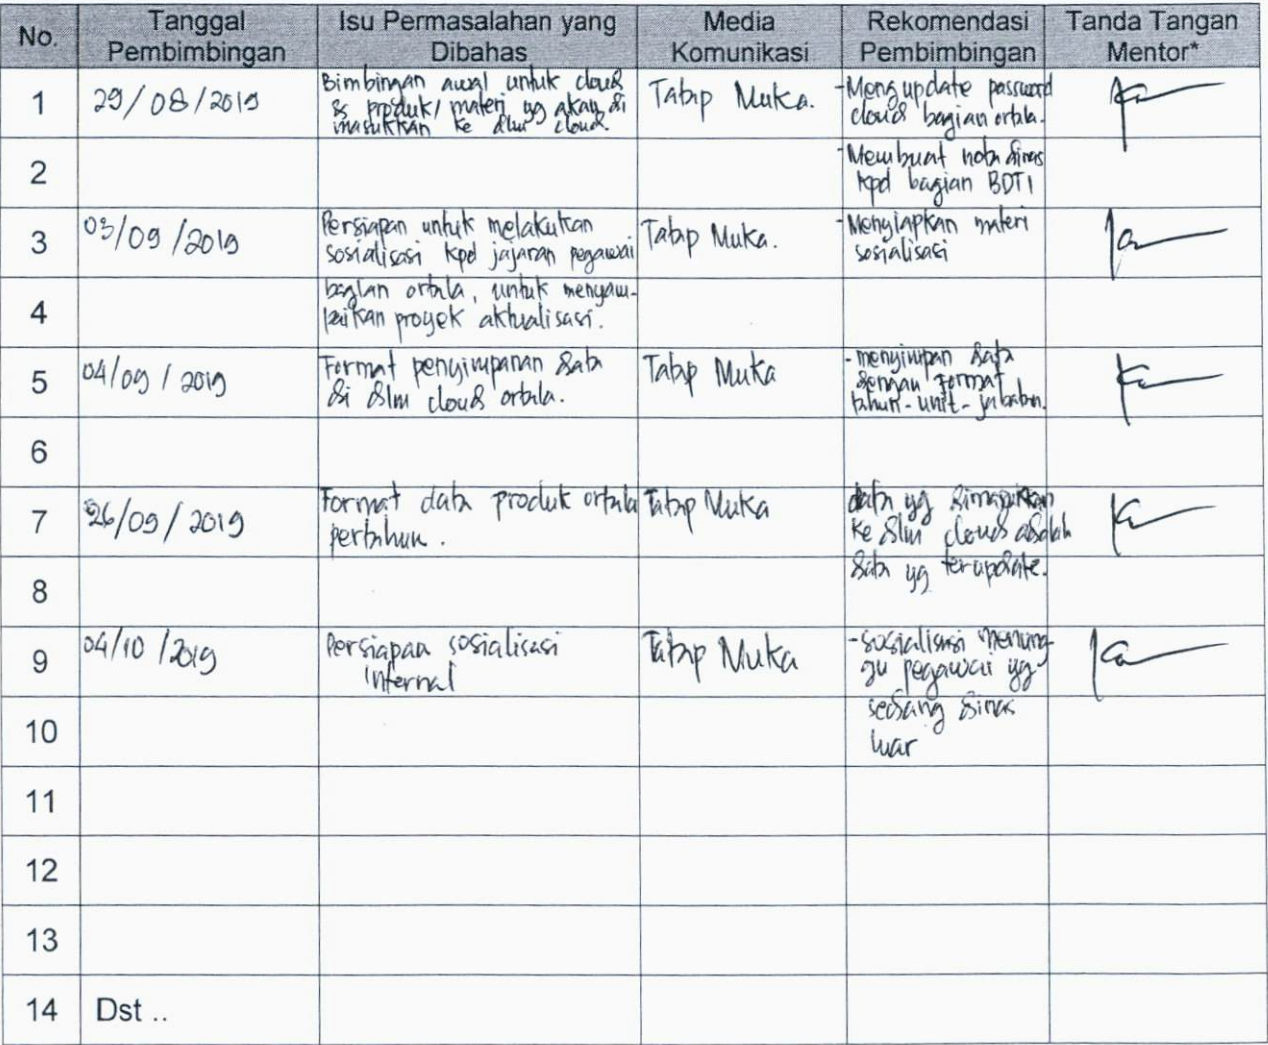 No.
Tanggal
Pembimbingan
Isu Permasalahan yang
Dibahas
Media
Komunikasi
Rekomendasi
Pembimbingan
Tanda Tangan
Mentor*
1
29/08/2019
Bimbingan awal untuk cloud
& produk/materi yg akan di
masukkan ke dlm cloud.
Tatap Muka.
-Mengupdate password
cloud bagian ortala.
2
-Membuat nota dinas
kpd bagian BDTI
3
03/09/2019
Persiapan untuk melakukan
sosialisasi kpd jajaran pegawai
Tatap Muka.
-Menyiapkan materi
sosialisasi
4
bagian ortala, untuk menyam-
paikan proyek aktualisasi.
5
04/09/2019
Format penyimpanan data
di dlm cloud ortala.
Tatap Muka
-menyimpan data
dengan format
tahun-unit-jabatan.
6
7
26/09/2019
Format data produk ortala
pertahun.
Tatap Muka
data yg dimasukkan
ke dlm cloud adalah
8
data yg terupdate.
9
04/10/2019
Persiapan sosialisasi
internal
Tatap Muka
-sosialisasi menung-
gu pegawai yg
10
sedang dinas
luar
11
12
13
14
Dst ..